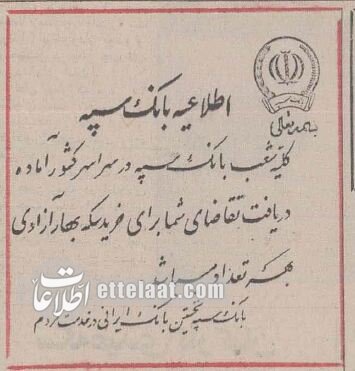 بسمه تعالی
اطلاعیه بانک سپه
کلیه شعب بانک سپه در سراسر کشور آماده
دریافت تقاضای شما برای خرید سکه بهار آزادی
بهر تعداد میباشد
بانک سپه نخستین بانک ایرانی در خدمت مردم
اطلاعات ettelaat.com